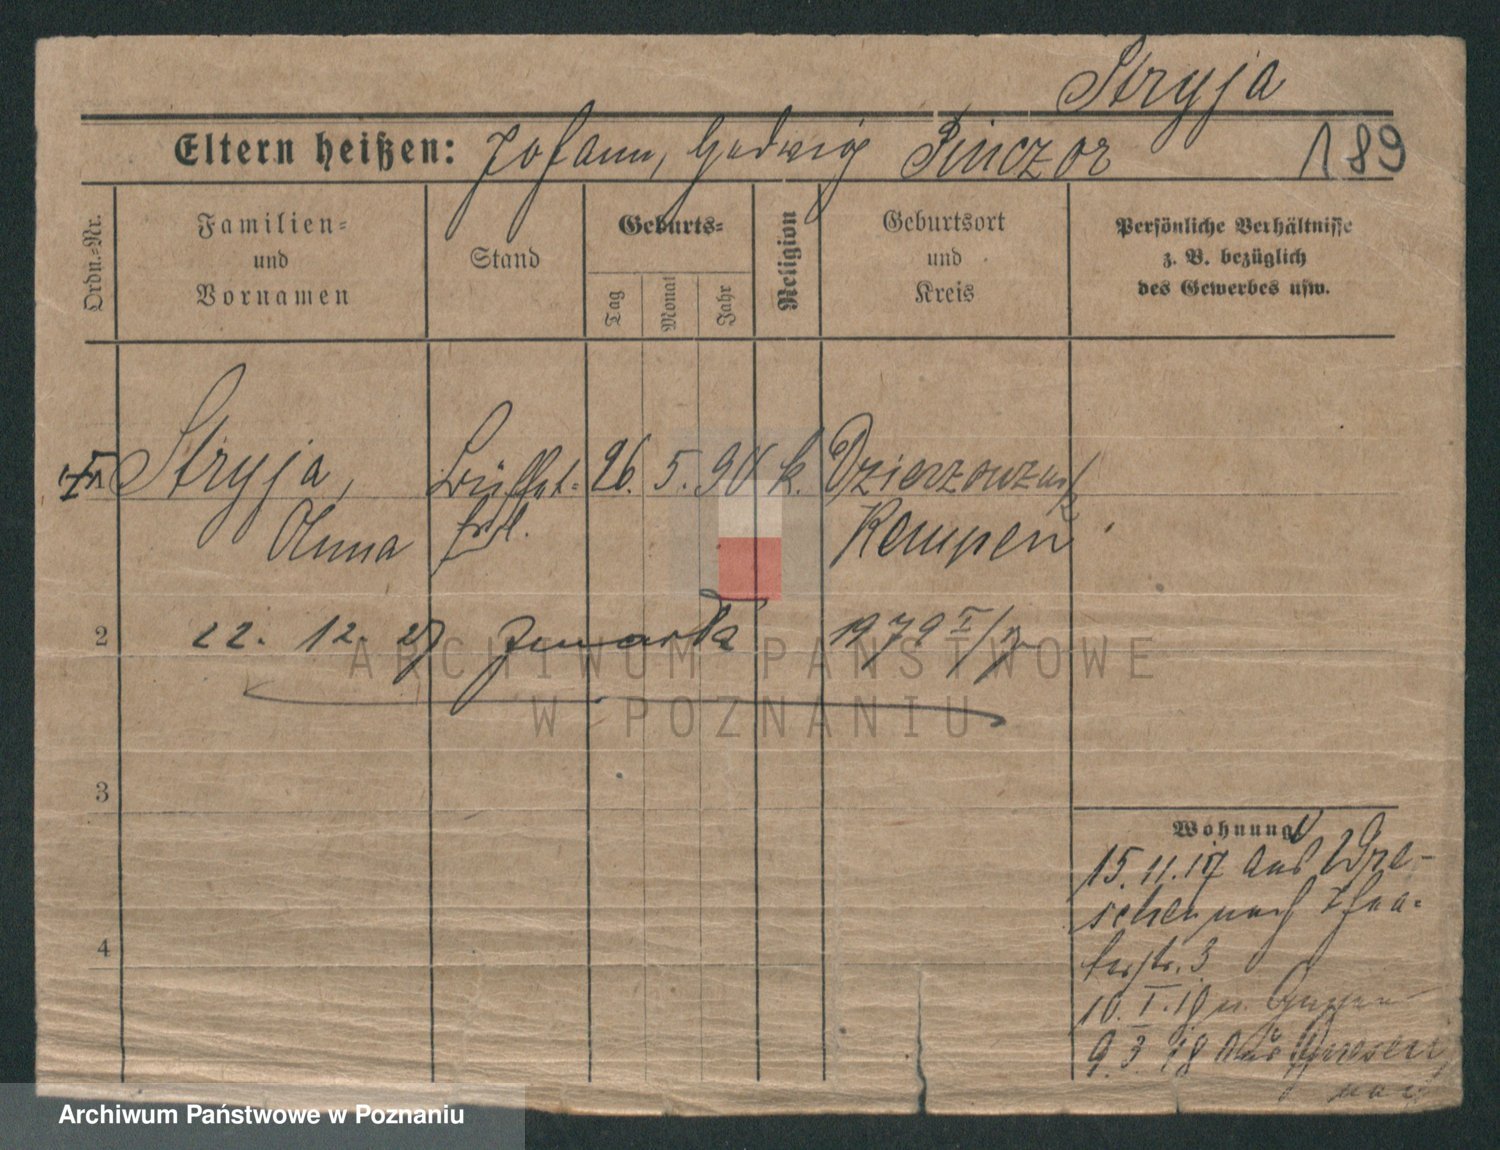 Stryja
Eltern heißen: Johann, Hedwig Pinczor 189
Ordn.-Nr.
Familien-
und
Vornamen
Stand
Geburts-
Tag
Monat
Jahr
Religion
Geburtsort
und
Kreis
Persönliche Verhältnisse
z. B. bezüglich
des Gewerbes usw.
Stryja, Büffet- 26. 5. 90 k.
Anna frl. Kempen
2 22. 12. 27 1979
3
Wohnung
15. 11. 17 aus Wre-
schen nach Thea-
terstr. 3
4
10. I. 18 n. Gnesen
9. 3. 18 aus Gnesen
nach
ARCHIWUM PAŃSTWOWE
W POZNANIU
Archiwum Państwowe w Poznaniu